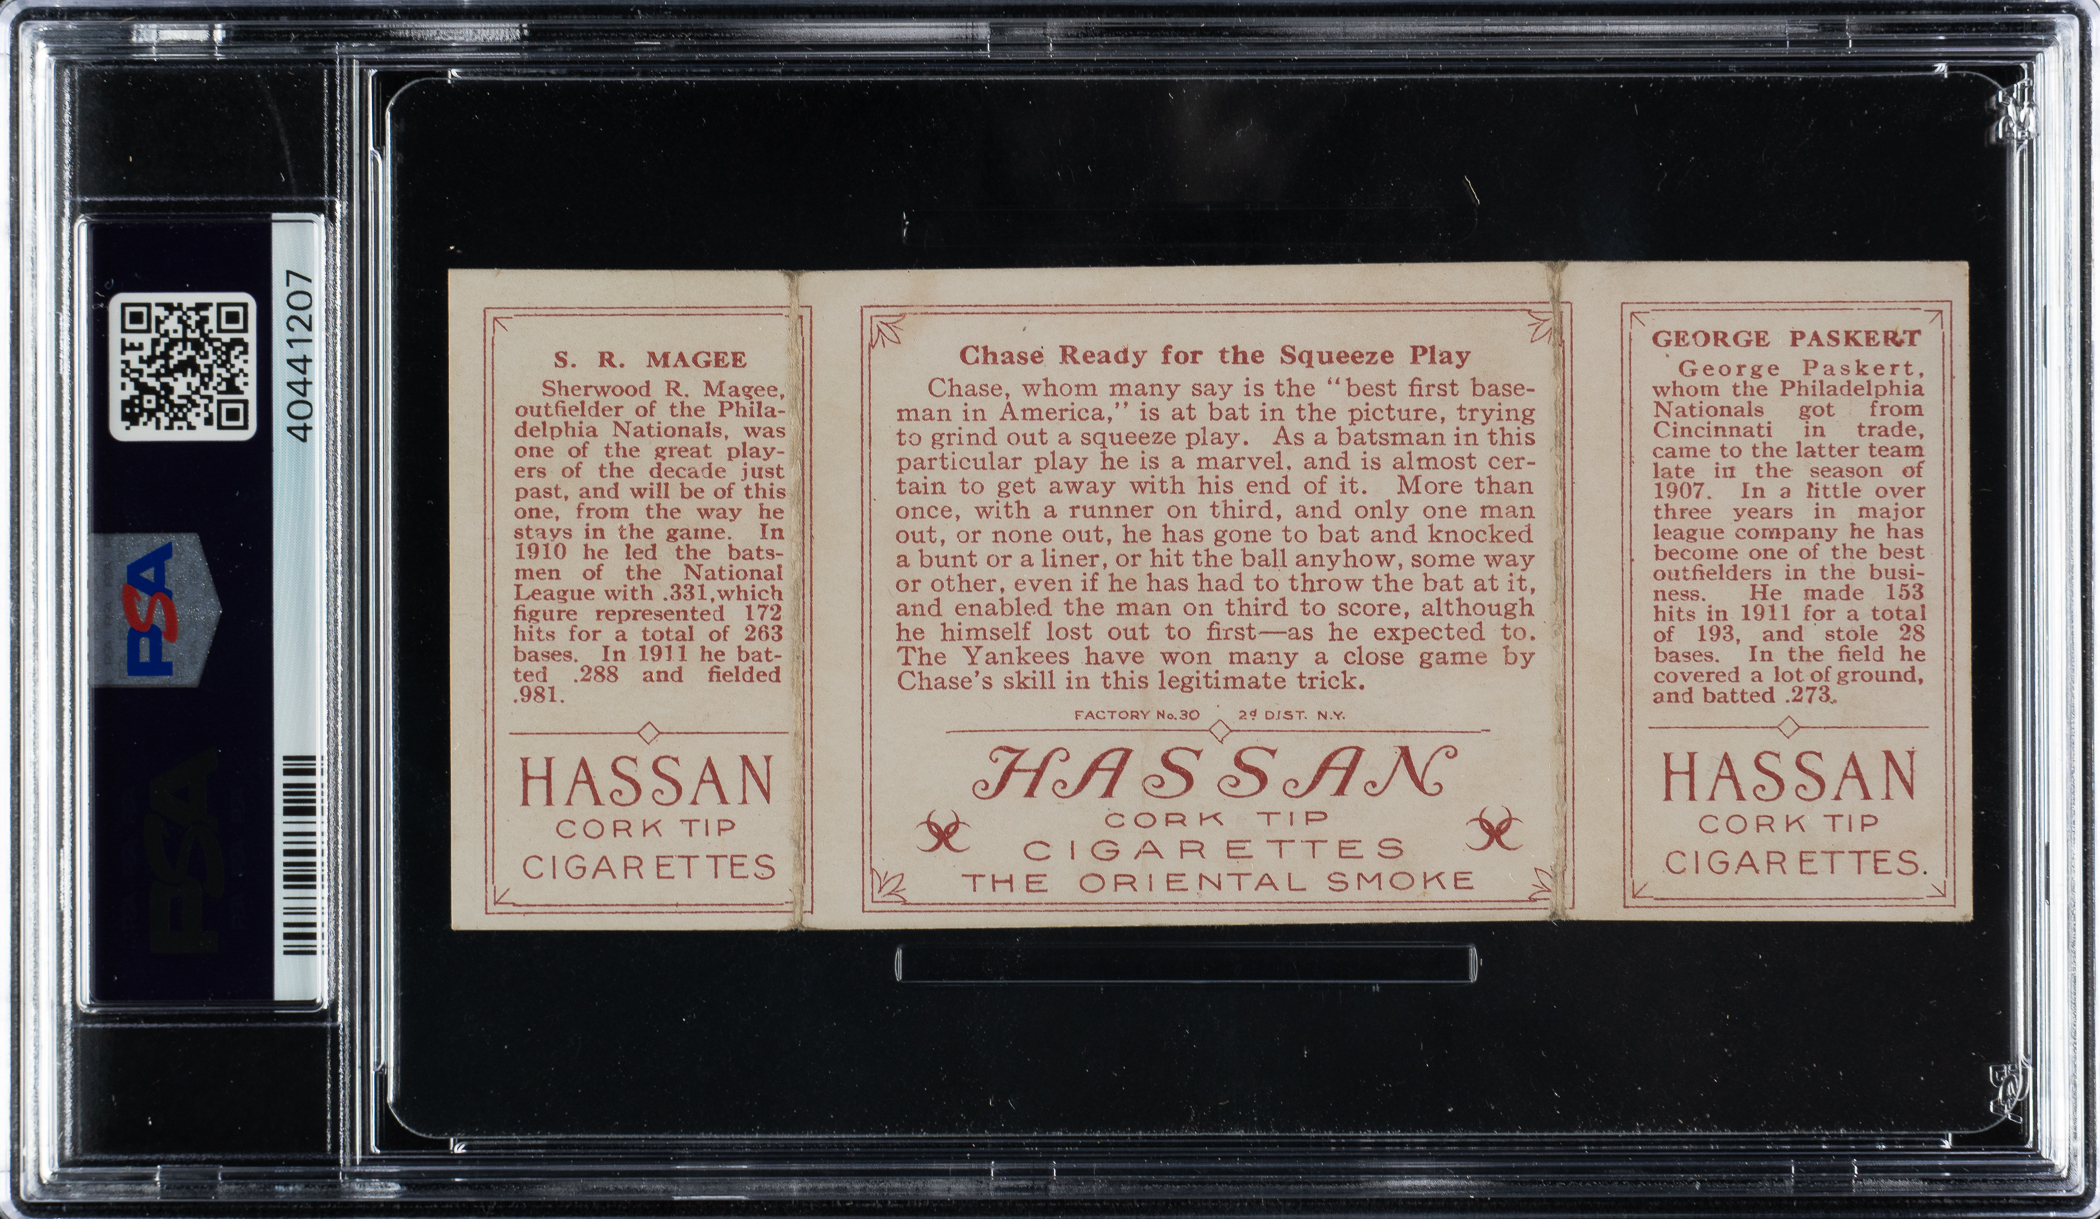 40441207
PSA
S. R. MAGEE
Sherwood R. Magee,
outfielder of the Phila-
delphia Nationals, was
one of the great play-
ers of the decade just
past, and will be of this
one, from the way he
stays in the game. In
1910 he led the bats-
men of the National
League with .331,which
figure represented 172
hits for a total of 263
bases. In 1911 he bat-
ted .288 and fielded
.981.
HASSAN
CORK TIP
CIGARETTES
Chase Ready for the Squeeze Play
Chase, whom many say is the "best first base-
man in America," is at bat in the picture, trying
to grind out a squeeze play. As a batsman in this
particular play he is a marvel, and is almost cer-
tain to get away with his end of it. More than
once, with a runner on third, and only one man
out, or none out, he has gone to bat and knocked
a bunt or a liner, or hit the ball anyhow, some way
or other, even if he has had to throw the bat at it,
and enabled the man on third to score, although
he himself lost out to first—as he expected to.
The Yankees have won many a close game by
Chase's skill in this legitimate trick.
FACTORY No.30 2d DIST. N.Y.
HASSAN
CORK TIP
CIGARETTES
THE ORIENTAL SMOKE
GEORGE PASKERT
George Paskert,
whom the Philadelphia
Nationals got from
Cincinnati in trade,
came to the latter team
late in the season of
1907. In a little over
three years in major
league company he has
become one of the best
outfielders in the busi-
ness. He made 153
hits in 1911 for a total
of 193, and stole 28
bases. In the field he
covered a lot of ground,
and batted .273.
HASSAN
CORK TIP
CIGARETTES.